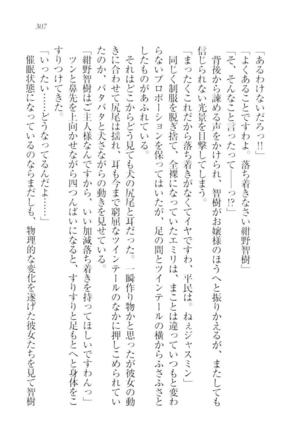 307
「あるわけないだろっ!!」
「よくあることですよ。落ち着きなさい紺野智樹」
「そ、そんなこと言ったって——っ!?」
背後から諫める声をかけられ、智樹がお嬢様のほうへと振りかえるが、またしても
信じられない光景を目撃してしまう。
「まったくこれだから落ち着きがなくてイヤですわ、平民は。ねぇジャスミン」
同じく制服を脱ぎ捨て、全裸になっていたエミリは、まことは違っていつもと変わ
らないプロポーションを保ってはいたが、足の間とツインテールの横からふさふさと
したものがあふれている。
それはどこからどう見ても犬の尻尾と耳だった。一瞬作り物かと思ったが彼女の動
きに合わせて尻尾は揺れ、耳も今まで窮屈にツインテールのなかに押しこめられてい
たのか、パタパタと犬さながらの動きを見せている。
「紺野智樹はご主人様なんですから、いい加減落ち着きを持ってほしいですわんっ」
ツンと鼻先を上向かせながら四つんばいになると、すりすりと足もとへと身体をこ
すりつけてきた。
「いったい……どうなってるんだよ……」
催眠状態になっているのならまだしも、物理的な変化を遂げた彼女たちを見て智樹